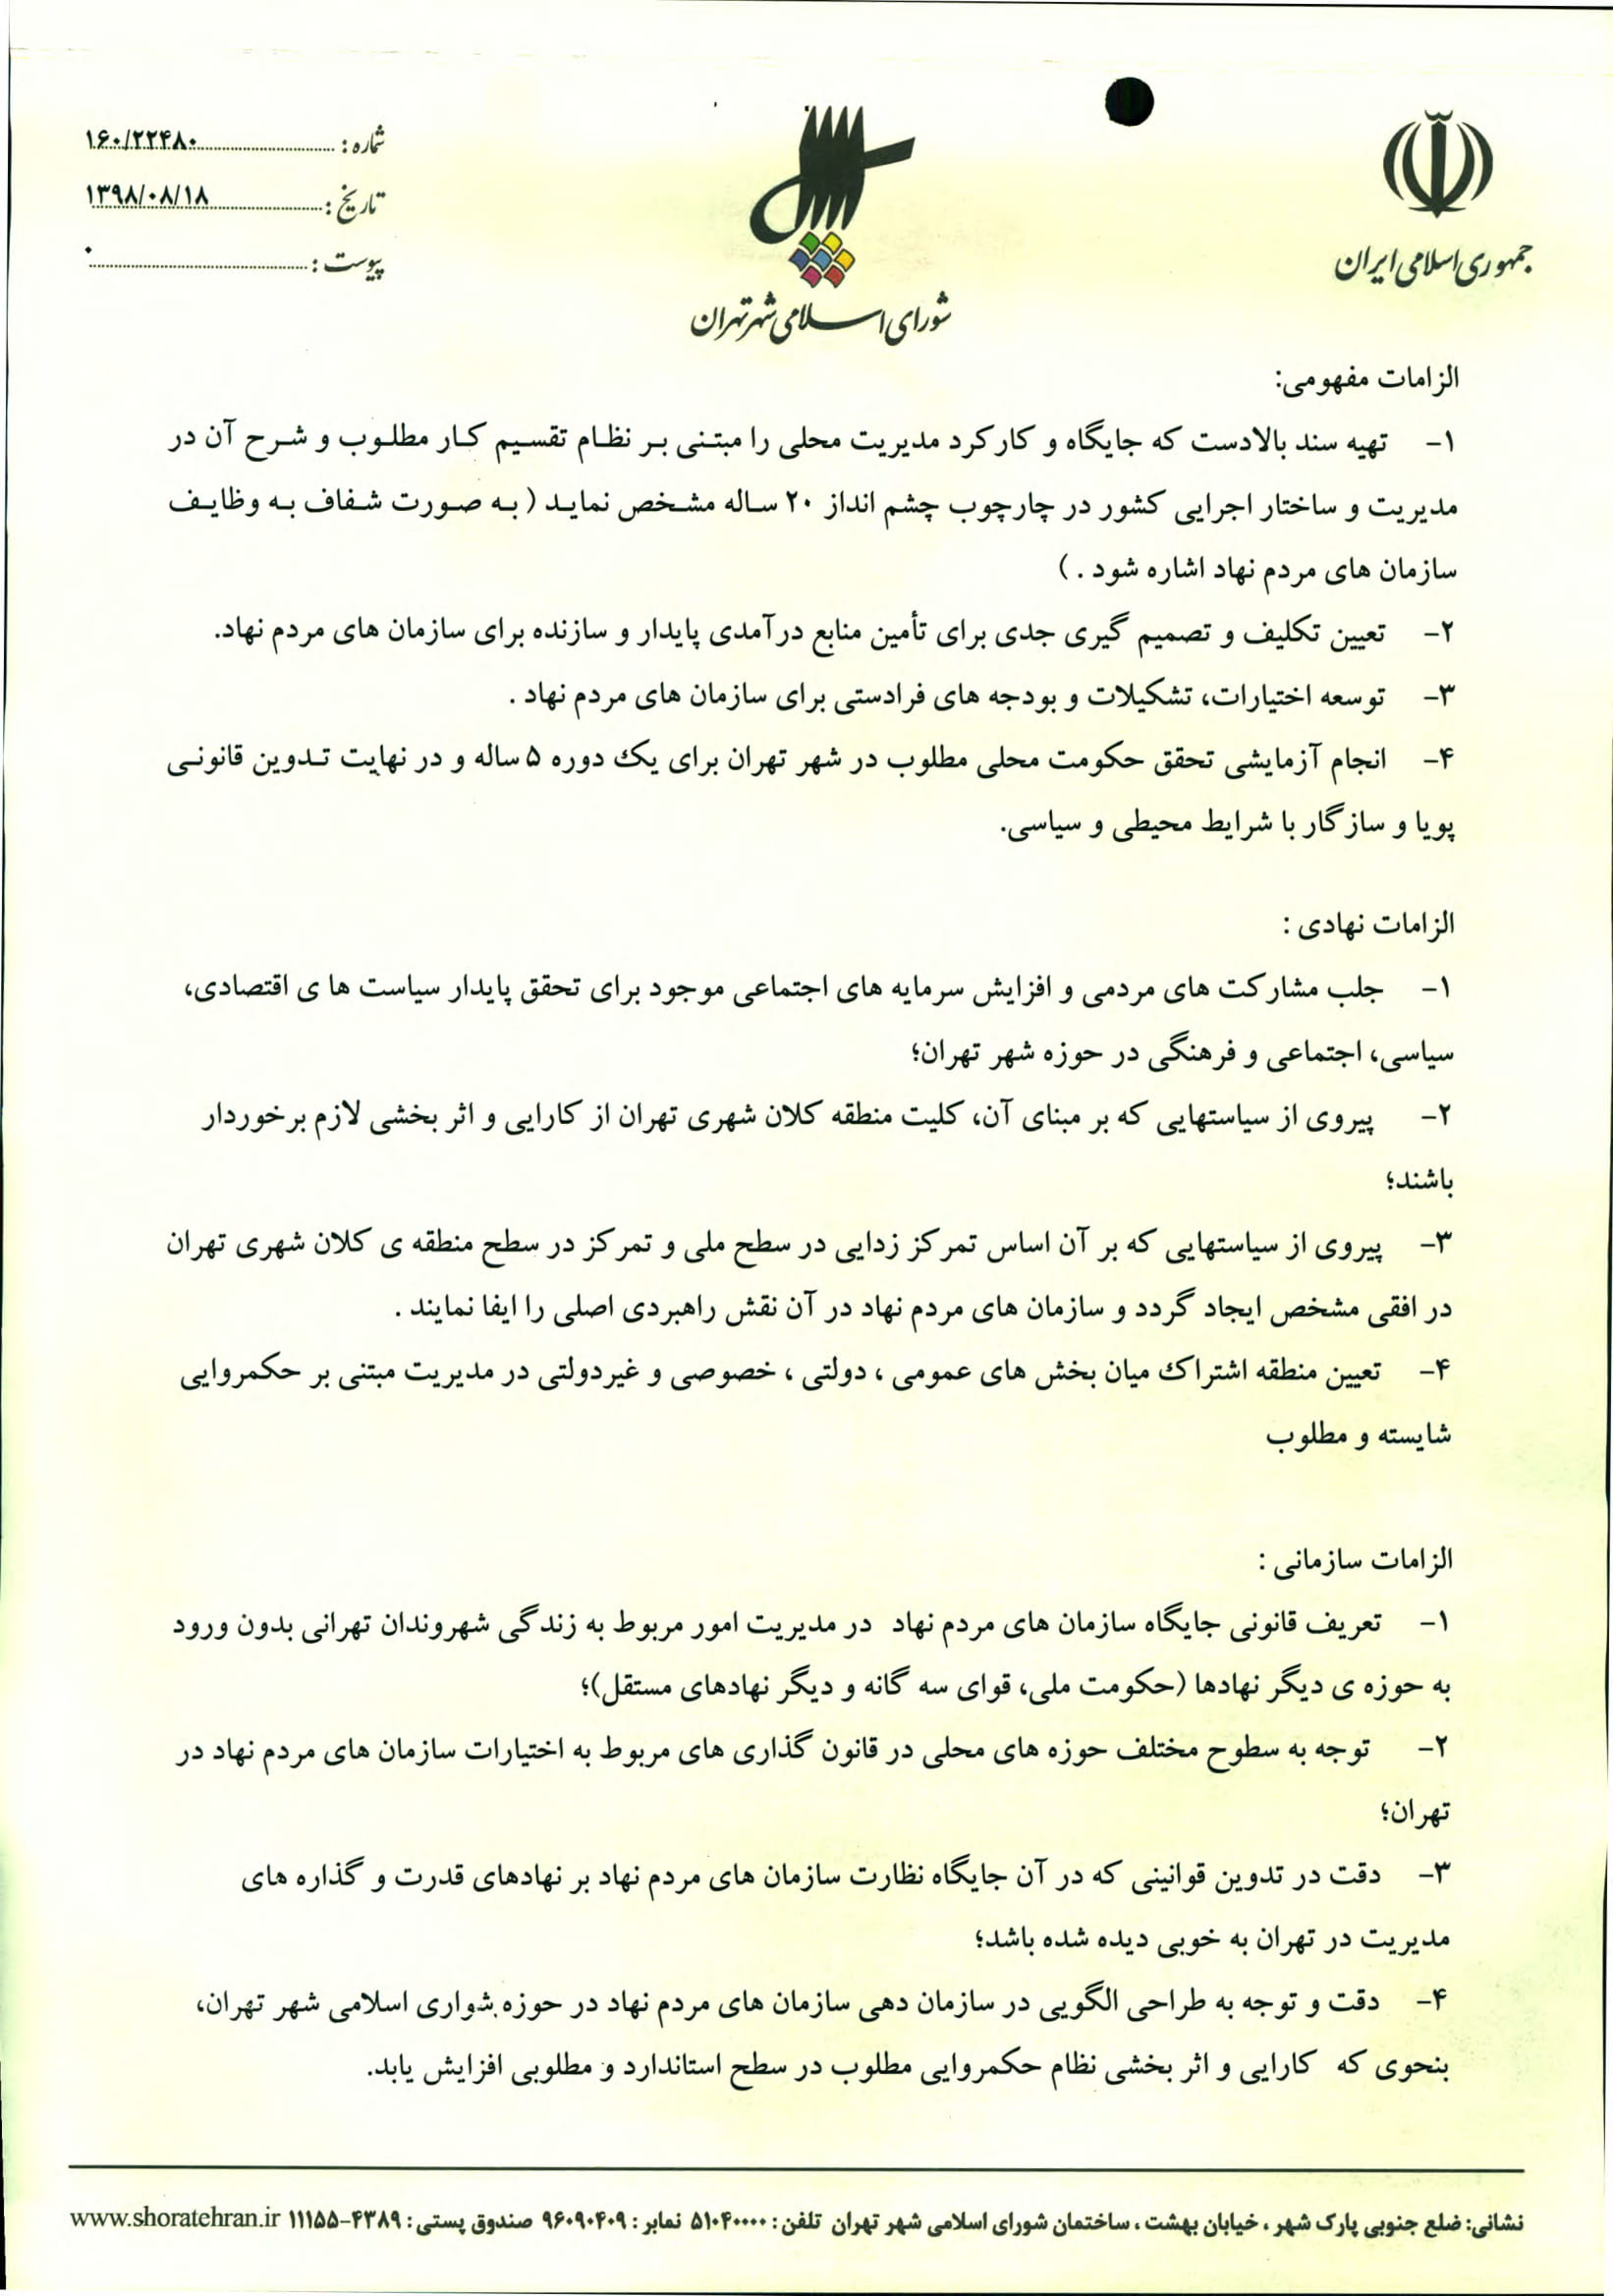 جمهوری اسلامی ایران
شورای اسلامی شهر تهران
شماره : ۱۶۰/۲۲۴۸۰
تاریخ : ۱۳۹۸/۰۸/۱۸
پیوست : ۰
الزامات مفهومی:
۱- تهیه سند بالادست که جایگاه و کارکرد مدیریت محلی را مبتنی بر نظام تقسیم کار مطلوب و شرح آن در
مدیریت و ساختار اجرایی کشور در چارچوب چشم انداز ۲۰ ساله مشخص نماید ( به صورت شفاف به وظایف
سازمان های مردم نهاد اشاره شود . )
۲- تعیین تکلیف و تصمیم گیری جدی برای تأمین منابع درآمدی پایدار و سازنده برای سازمان های مردم نهاد.
۳- توسعه اختیارات، تشکیلات و بودجه های فرادستی برای سازمان های مردم نهاد .
۴- انجام آزمایشی تحقق حکومت محلی مطلوب در شهر تهران برای یک دوره ۵ ساله و در نهایت تدوین قانونی
پویا و سازگار با شرایط محیطی و سیاسی.
الزامات نهادی :
۱- جلب مشارکت های مردمی و افزایش سرمایه های اجتماعی موجود برای تحقق پایدار سیاست ها ی اقتصادی،
سیاسی، اجتماعی و فرهنگی در حوزه شهر تهران؛
۲- پیروی از سیاستهایی که بر مبنای آن، کلیت منطقه کلان شهری تهران از کارایی و اثر بخشی لازم برخوردار
باشند؛
۳- پیروی از سیاستهایی که بر آن اساس تمرکز زدایی در سطح ملی و تمرکز در سطح منطقه ی کلان شهری تهران
در افقی مشخص ایجاد گردد و سازمان های مردم نهاد در آن نقش راهبردی اصلی را ایفا نمایند .
۴- تعیین منطقه اشتراک میان بخش های عمومی ، دولتی ، خصوصی و غیردولتی در مدیریت مبتنی بر حکمروایی
شایسته و مطلوب
الزامات سازمانی :
۱- تعریف قانونی جایگاه سازمان های مردم نهاد در مدیریت امور مربوط به زندگی شهروندان تهرانی بدون ورود
به حوزه ی دیگر نهادها (حکومت ملی، قوای سه گانه و دیگر نهادهای مستقل)؛
۲- توجه به سطوح مختلف حوزه های محلی در قانون گذاری های مربوط به اختیارات سازمان های مردم نهاد در
تهران؛
۳- دقت در تدوین قوانینی که در آن جایگاه نظارت سازمان های مردم نهاد بر نهادهای قدرت و گذاره های
مدیریت در تهران به خوبی دیده شده باشد؛
۴- دقت و توجه به طراحی الگویی در سازمان دهی سازمان های مردم نهاد در حوزه شواری اسلامی شهر تهران،
بنحوی که کارایی و اثر بخشی نظام حکمروایی مطلوب در سطح استاندارد و مطلوبی افزایش یابد.
نشانی: ضلع جنوبی پارک شهر ، خیابان بهشت ، ساختمان شورای اسلامی شهر تهران تلفن : ۵۱۰۴۰۰۰۰ نمابر : ۹۶۰۹۰۴۰۹ صندوق پستی : ۴۳۸۹-۱۱۱۵۵ www.shoratehran.ir